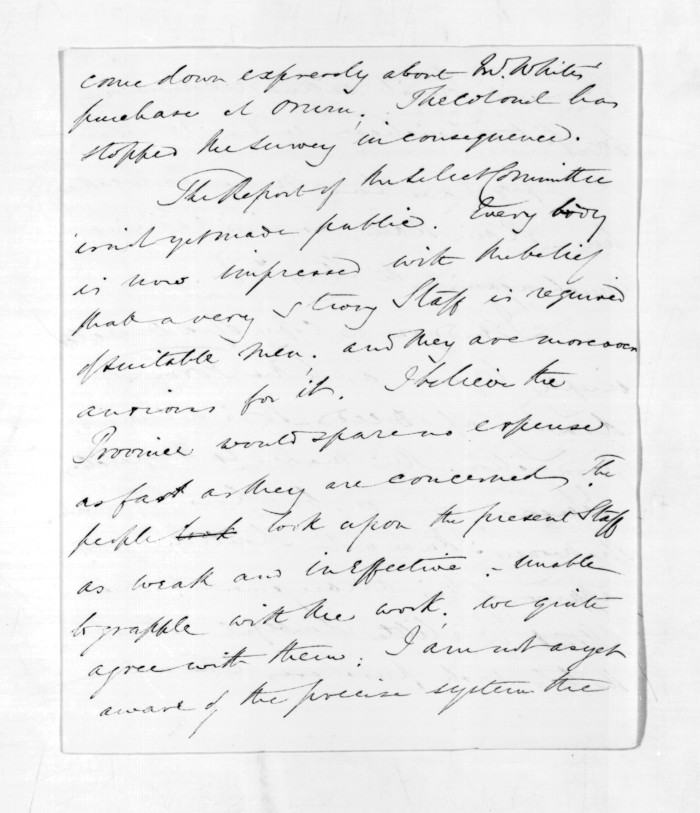 come down expressly about Mr. White's
purchase at Oruru. The Colonel has
stopped the survey in consequence.
The Report of the Select Committee
is not yet made public. Every body
is now impressed with the belief
that a very strong Staff is required
of suitable men, and they are moreover
anxious for it. I believe the
Province would spare no expense
as far as they are concerned. The
people look look upon the present Staff
as weak and ineffective - unable
to grapple with the work. We quite
agree with them. I am not as yet
aware of the precise system the